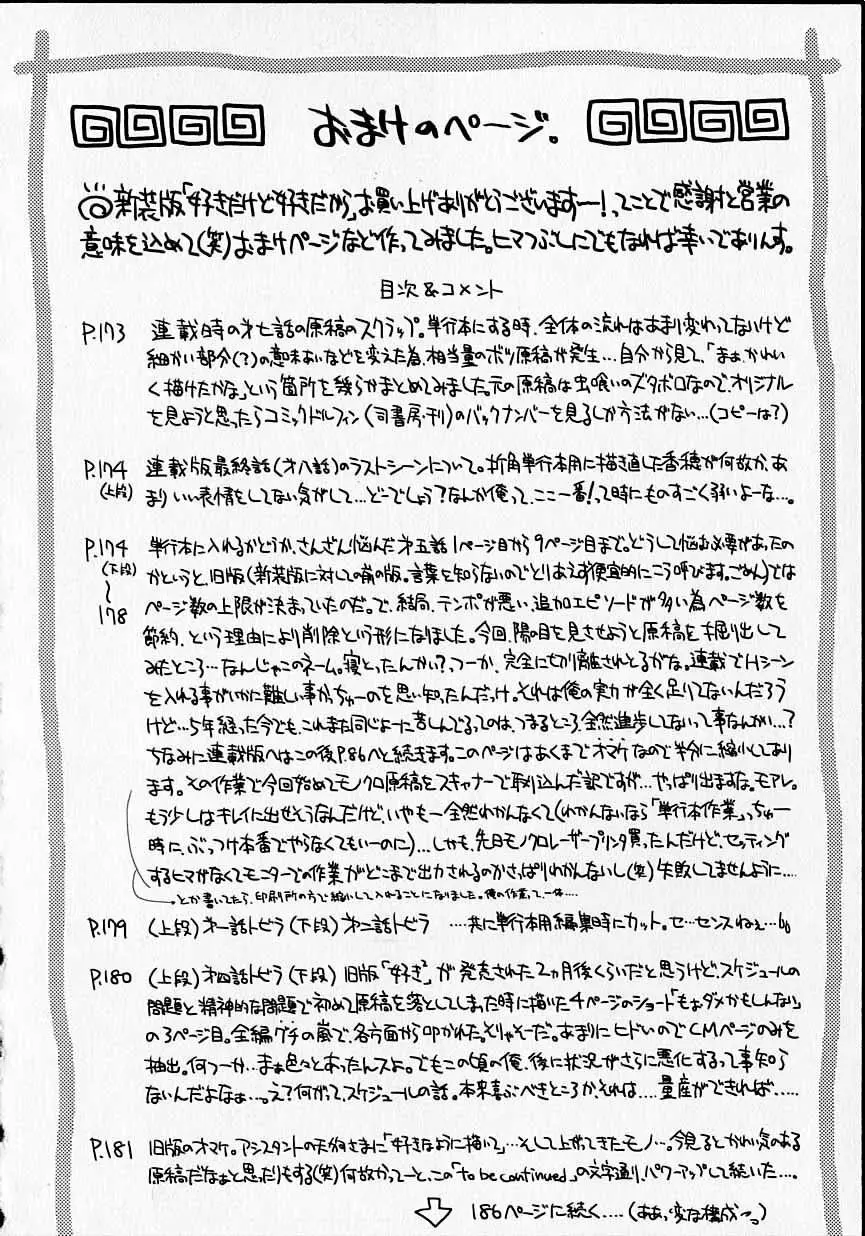 おまけのページ。
新装版「好きだけど好きだから」お買い上げありがとうございますー!ってことで感謝と営業の
意味を込めて(笑)おまけページなど作ってみました。ヒマつぶしにでもなれば幸いでありんす。
目次&コメント
P.173 連載時の才七話の原稿のスクラップ。単行本にする時、全体の流れはあまり変わってないけど
細かい部分(?)の意味あいなどを変えた為、相当量のボツ原稿が発生…自分から見て、「まぁ、かわい
く描けたかな」という箇所を幾らかまとめてみました。元の原稿は虫喰いのズタボロなので、オリジナル
を見ようと思ったらコミックドルフィン(司書房・刊)のバックナンバーを見るしか方法がない…(コピーは?)
P.174 連載版最終話(才八話)のラストシーンについて。折角単行本用に描き直した香穂が何故か、あ
(上段) まりいい表情をしてない気がして…どーでしょう?なんか俺って、ここ一番!って時にものすごく弱いよーな…。
P.174 単行本に入れるかどうか、さんざん悩んだ才五話1ページ目から9ページ目まで。どうして悩む必要があったの
(下段) かというと、旧版(新装版に対しての前の版。言葉を知らないのでとりあえず便宜的にこう呼びます。ごめん)では
〜 ページ数の上限が決まっていたのだ。で、結局、テンポが悪い、追加エピソードが多い為ページ数を
178 節約、という理由により削除という形になりました。今回、陽の目を見させようと原稿を掘り出して
みたところ…なんじゃこのネーム。寝とったんかい?、つーか、完全に切り離されとるがな。連載でHシーン
を入れる事がいかに難しい事か、っちゅーのを思い知ったんだっけ。それは俺の実力が全く足りてないんだろう
けど…5年経った今でも、これまた同じよーに苦しんでる、ってのは、つまるところ、全然進歩してないって事なんかい…?
ちなみに連載版へはこの後P.86へと続きます。このページはあくまでオマケなので半分に縮小してあり
ます。その作業で今回始めてモノクロ原稿をスキャナーで取り込んだ訳ですが…やっぱり出ますな。モアレ。
もう少しはキレイに出せそうなんだけど、いやもー全然わかんなくて(わかんないなら「単行本作業」っちゅー
時に、ぶっつけ本番でやらなくてもいーのに)…しかも、先日モノクロレーザープリンタ買ったんだけど、セッティング
するヒマがなくてモニターでの作業がどこまで出力されるのかさっぱりわかんないし(笑)失敗してませんように…
とか書いてたら、印刷所の方で縮小して入れることになりました。俺の作業って、一体…
P.179 (上段)才一話トビラ(下段)才二話トビラ …共に単行本用編集時にカット。セ…センスねぇ…
P.180 (上段)才四話トビラ(下段)旧版「好き²」が発売された2ヵ月後くらいだと思うけど、スケジュールの
問題と精神的な問題で初めて原稿を落としてしまった時に描いた4ページのショート「もぉダメかもしんない」
の3ページ目。全編グチの嵐で、各方面から叩かれた。そりゃそーだ。あまりにヒドいのでCMページのみを
抽出。何つーか…まぁ色々とあったんスよ。でもこの頃の俺、後に状況がさらに悪化するって事知ら
ないんだよなぁ…。っえ?何がって、スケジュールの話。本来喜ぶべきところか、それは…量産ができれば…
P.181 旧版のオマケ。アシスタントの さまに「好きなように描いて」…そして上がってきたモノ…。今見るとかわい気のある
原稿だなぁと思ったりもする(笑)何故かってーと、この「to be continued」の文字通り、パワーアップして続いた…。
186ページに続く…(ああっ、変な構成〜っ)